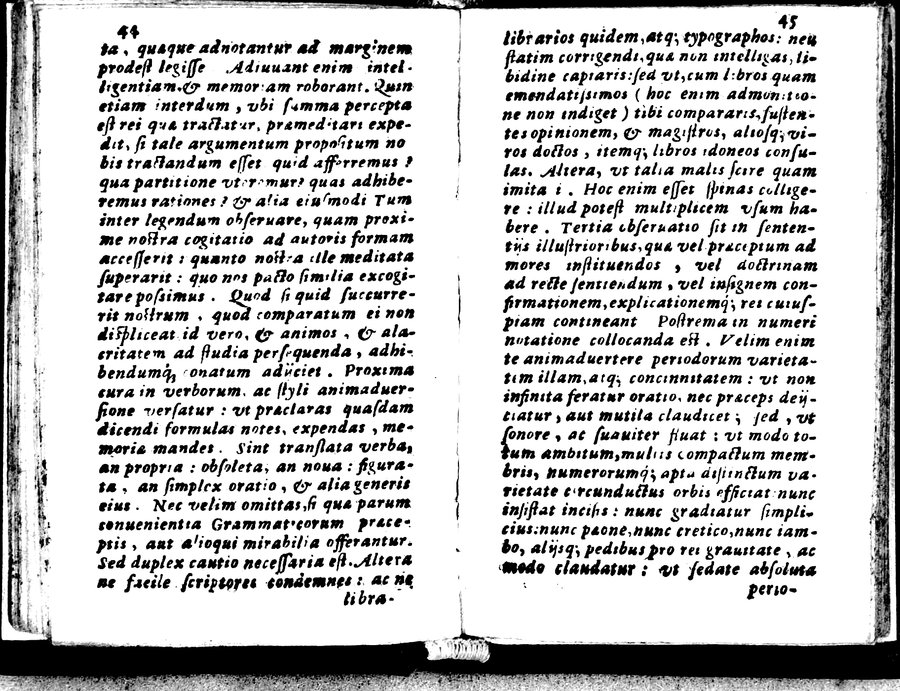 44
ta, quæque adnotantur ad marginem
prodest legisse Adiuuant enim intel-
ligentiam, & memoriam roborant. Quin
etiam interdum, vbi summa percepta
est rei quæ tractatur, præmeditari expe-
dit, si tale argumentum propositum no
bis tractandum esset quid afferremus?
qua partitione vteremur? quas adhibe-
remus rationes? & alia eiusmodi Tum
inter legendum obseruare, quam proxi-
me nostra cogitatio ad autoris formam
accesserit: quanto nostra ille meditata
superarit: quo nos pacto similia excogi-
tare possimus. Quod si quid succurre-
rit nostrum, quod comparatum ei non
displiceat id vero, & animos, & ala-
critatem ad studia persequenda, adhi-
bendumq; conatum adijciet. Proxima
cura in verborum, ac styli animaduer-
sione versatur: vt præclaras quasdam
dicendi formulas notes, expendas, me-
moriæ mandes. Sint translata verba,
an propria: obsoleta, an noua: figura-
ta, an simplex oratio, & alia generis
eius. Nec velim omittas, si quæ parum
conuenientia Grammaticorum præce-
ptis, aut alioqui mirabilia offerantur.
Sed duplex cautio necessaria est. Altera
ne facile scriptores condemnes: ac ne
libra-
45
librarios quidem, atq; typographos: neu
statim corrigendi, quæ non intelligas, li-
bidine capiaris: sed vt, cum libros quam
emendatissimos (hoc enim admonitio-
ne non indiget) tibi compararis, susten-
tes opinionem, & magistros, aliosq; vi-
ros doctos, itemq; libros idoneos consu-
las. Altera, vt talia malis scire quam
imitari. Hoc enim esset spinas collige-
re: illud potest multiplicem vsum ha-
bere. Tertia obseruatio sit in senten-
tijs illustrioribus, quæ vel præceptum ad
mores instituendos, vel doctrinam
ad recte sentiendum, vel insignem con-
firmationem, explicationemq; rei cuius-
piam contineant Postrema in numeri
notatione collocanda est. Velim enim
te animaduertere periodorum varieta-
tem illam, atq; concinnitatem: vt non
infinita feratur oratio, nec præceps deij-
ciatur, aut mutila claudicet; sed, vt
sonore, ac suauiter fluat: vt modo to-
tum ambitum, multis compactum mem-
bris, numerorumq; apta distinctum va-
rietate circunductus orbis efficiat nunc
insistat incisis: nunc gradiatur simpli-
cius: nunc pæone, nunc cretico, nunc iam-
bo, alijsq; pedibus pro rei grauitate, ac
modo claudatur: vt sedate absoluta
perio-